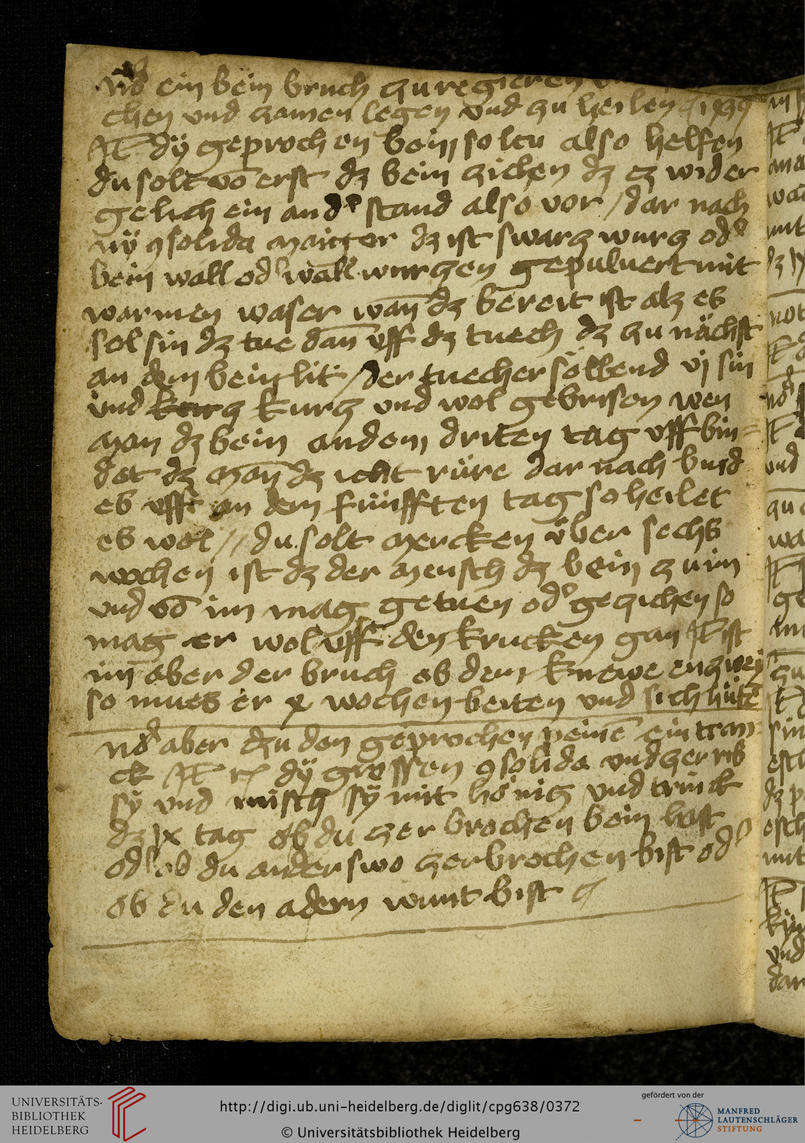 vnd ein bein bruch zu regieren
chen vnd zamen legen vnd zu heilen
Jt dÿ geprochen bein soltu also helfen
du solt vo erst dz bein zichen dz ez wider
gelich ein and' stand also vor / dar nach
nÿ 9solida maiger dz ist swarz wurz od'
bein wall od' wall wurczen gepuluert mit
warmen waser wan dz bereit ist alz es
sol sin dz tue dan vff dz tuech dz zu nächst
an dem bein lit / der tuecher söllend vj sin
vnd kurz vnd wol gebrisen wen
man dz bein an dem driten tag vff bin=
det dz man dz icht rüre dar nach bind
es vff an dem fünfften tag so heilet
es wol // du solt mercken über sechs
wochen ist dz der mensch dz bein zu im
vnd vo im mag getuen od' gezichen so
mag er wol vff den krucken gan Jt ist
im aber der bruch ob dem knewe enzwey
so mues er x wochen beiten vnd sich hüte
nd' aber zu den geprochen peine ein tran=
ck Jt dÿ grossen 9solida vnd zerrib
sÿ vnd misch sÿ mit honig vnd trinck
dz jx tag ob du zer brochen bein hast
od' ob du anderswo zerbrochen bist od'
ob du den adern wunt bist
UNIVERSITÄTS-
BIBLIOTHEK
HEIDELBERG
http://digi.ub.uni-heidelberg.de/diglit/cpg638/0372
© Universitätsbibliothek Heidelberg
gefördert von der
MANFRED
LAUTENSCHLÄGER
STIFTUNG